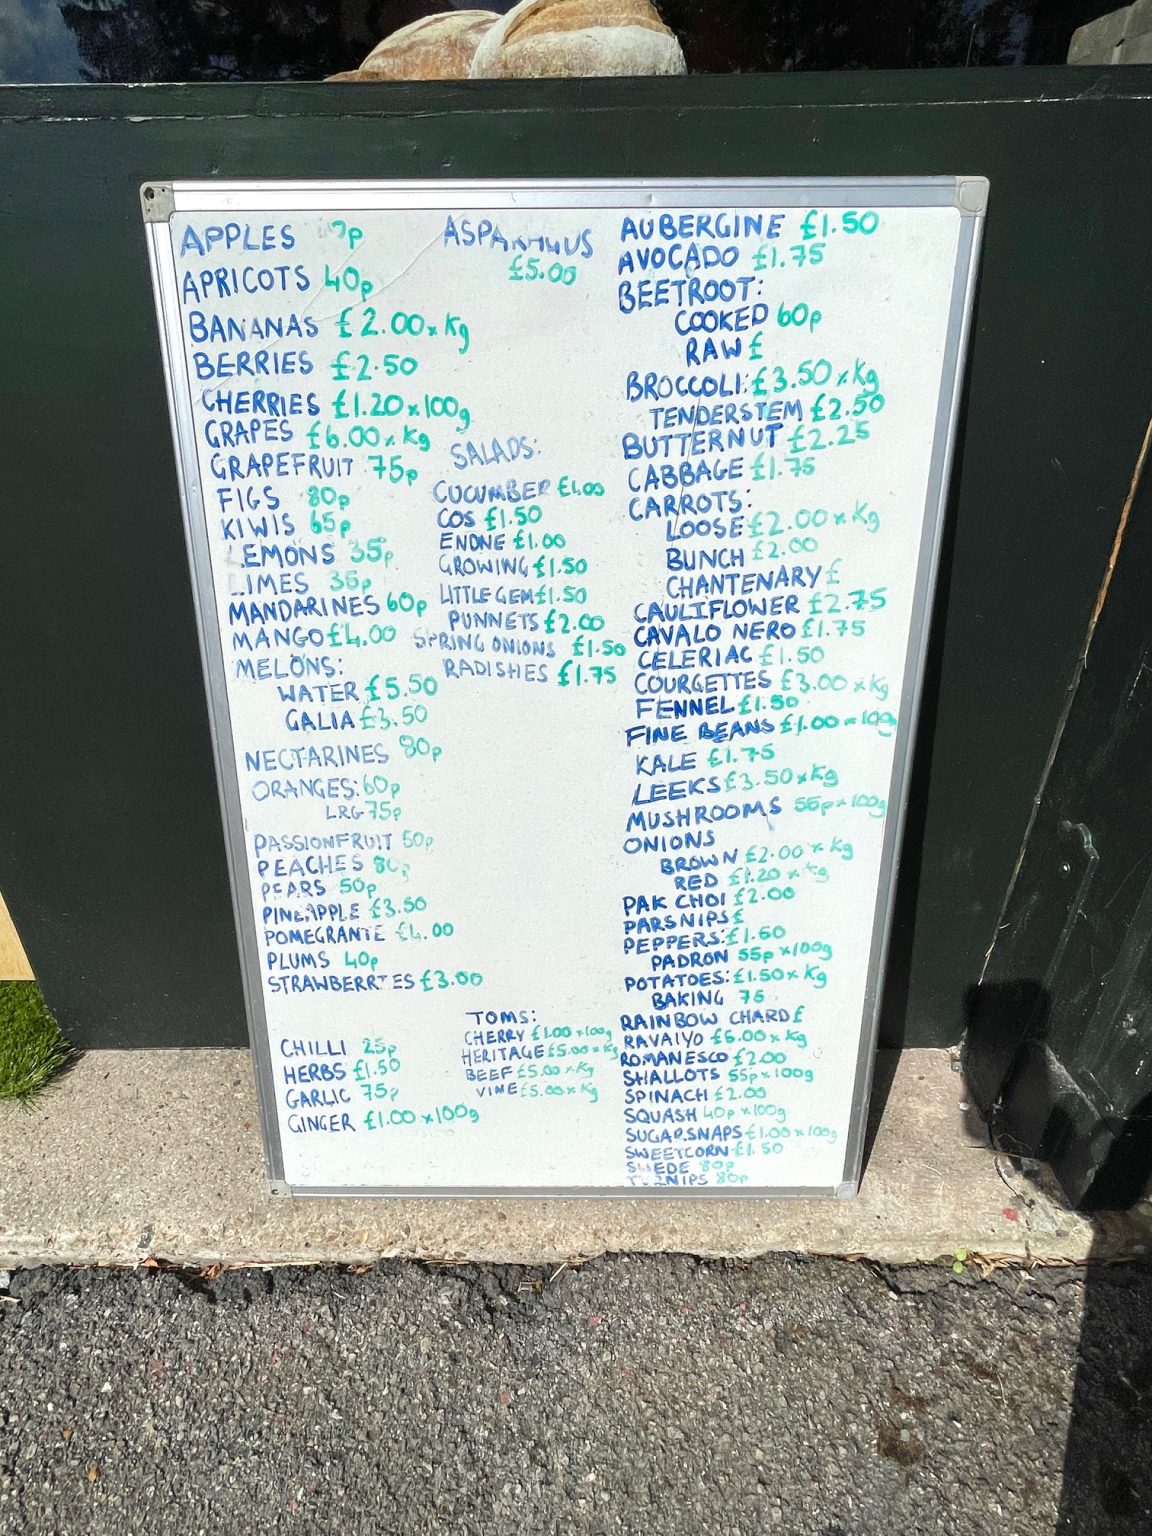 APPLES
APRICOTS 40p
BANANAS £2.00 x Kg
BERRIES £2.50
CHERRIES £1.20 x 100g
GRAPES £6.00 x Kg
GRAPEFRUIT 75p
FIGS 80p
KIWIS 65p
LEMONS 35p
LIMES 35p
MANDARINES 60p
MANGO £4.00
MELONS:
WATER £5.50
GALIA £3.50
NECTARINES 80p
ORANGES: 60p
LRG 75p
PASSIONFRUIT 50p
PEACHES 80p
PEARS 50p
PINEAPPLE £3.50
POMEGRANTE £4.00
PLUMS 40p
STRAWBERRIES £3.00
CHILLI 25p
HERBS £1.50
GARLIC 75p
GINGER £1.00 x 100g
ASPARAGUS
£5.00
SALADS:
CUCUMBER £1.00
COS £1.50
ENDIVE £1.00
GROWING £1.50
LITTLE GEM £1.50
PUNNETS £2.00
SPRING ONIONS £1.50
RADISHES £1.75
TOMS:
CHERRY £1.00 x 100g
HERITAGE £5.00 x Kg
BEEF £5.00 x Kg
VINE £5.00 x Kg
AUBERGINE £1.50
AVOCADO £1.75
BEETROOT:
COOKED 60p
RAW £
BROCCOLI: £3.50 x Kg
TENDERSTEM £2.50
BUTTERNUT £2.25
CABBAGE £1.75
CARROTS:
LOOSE £2.00 x Kg
BUNCH £2.00
CHANTENARY £
CAULIFLOWER £2.75
CAVALO NERO £1.75
CELERIAC £1.50
COURGETTES £3.00 x Kg
FENNEL £1.50
FINE BEANS £1.00 = 100g
KALE £1.75
LEEKS £3.50 x Kg
MUSHROOMS 55p x 100g
ONIONS
BROWN £2.00 x Kg
RED £1.20 x Kg
PAK CHOI £2.00
PARSNIPS £
PEPPERS: £1.60
PADRON 55p x 100g
POTATOES: £1.50 x Kg
BAKING 75
RAINBOW CHARD £
RAVAIYO £6.00 x Kg
ROMANESCO £2.00
SHALLOTS 55p x 100g
SPINACH £2.00
SQUASH 40p x 100g
SUGARSNAPS £1.00 x 100g
SWEETCORN £1.50
SWEDE 80p
TURNIPS 80p